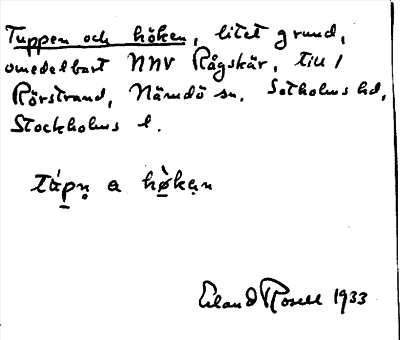 Tuppen och höken, litet grund,
omedelbart NNV Rågskär, till
Rörstrand, Nämdö sn. Sotholms hd,
Stockholms l.
tápn̥ a hø̀kan
Erland Rosell 1933